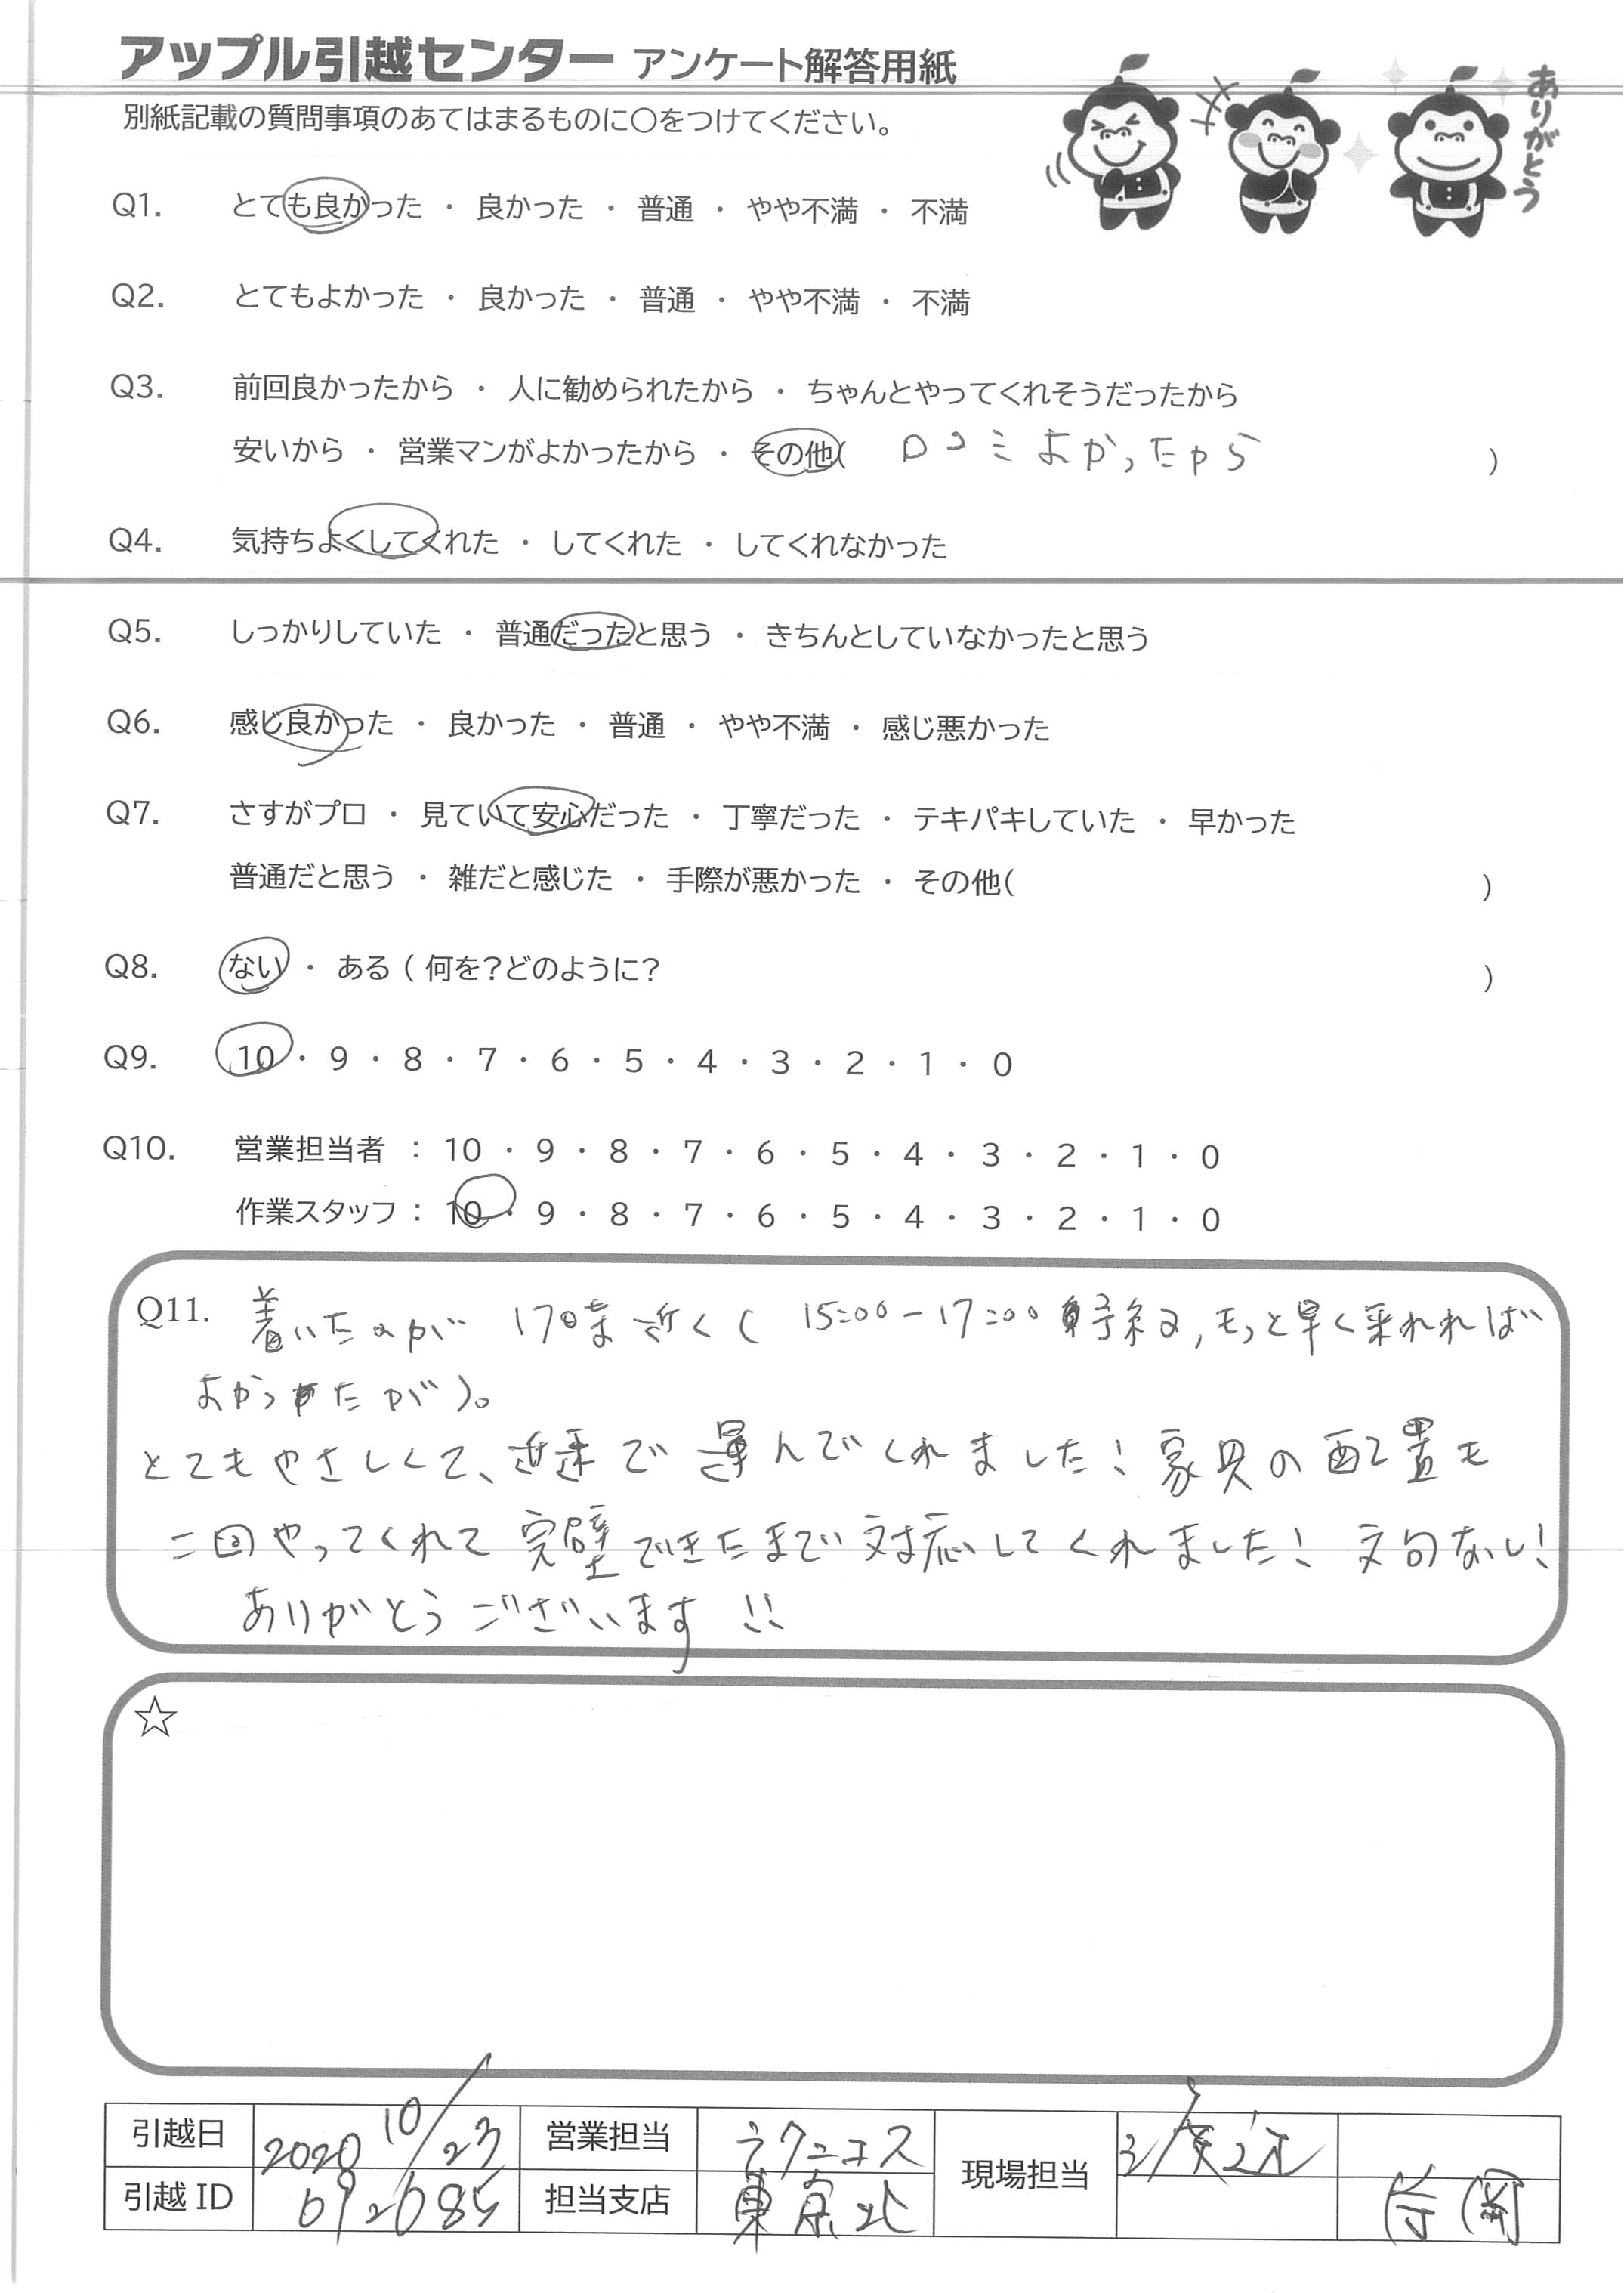 アップル引越センター アンケート解答用紙
別紙記載の質問事項のあてはまるものに○をつけてください。
ありがとう
Q1. とても良かった ・ 良かった ・ 普通 ・ やや不満 ・ 不満
Q2. とてもよかった ・ 良かった ・ 普通 ・ やや不満 ・ 不満
Q3. 前回良かったから ・ 人に勧められたから ・ ちゃんとやってくれそうだったから
安いから ・ 営業マンがよかったから ・ その他( 口コミよかったから )
Q4. 気持ちよくしてくれた ・ してくれた ・ してくれなかった
Q5. しっかりしていた ・ 普通だったと思う ・ きちんとしていなかったと思う
Q6. 感じ良かった ・ 良かった ・ 普通 ・ やや不満 ・ 感じ悪かった
Q7. さすがプロ ・ 見ていて安心だった ・ 丁寧だった ・ テキパキしていた ・ 早かった
普通だと思う ・ 雑だと感じた ・ 手際が悪かった ・ その他( )
Q8. ない ・ ある ( 何を?どのように? )
Q9. 10 ・ 9 ・ 8 ・ 7 ・ 6 ・ 5 ・ 4 ・ 3 ・ 2 ・ 1 ・ 0
Q10. 営業担当者 : 10 ・ 9 ・ 8 ・ 7 ・ 6 ・ 5 ・ 4 ・ 3 ・ 2 ・ 1 ・ 0
作業スタッフ : 10 ・ 9 ・ 8 ・ 7 ・ 6 ・ 5 ・ 4 ・ 3 ・ 2 ・ 1 ・ 0
Q11. 着いたのが 17時近く( 15:00-17:00 予約, もっと早く来れれば
よかったが)。
とてもやさしくて、で 運んでくれました! 家具の配置も
二回やってくれて 完璧できたまで 対応してくれました! 文句なし!
ありがとうございます!!
☆
引越日 2020 10/23 営業担当 ラクニコス 現場担当
引越ID 692685 担当支店 東京北 片岡